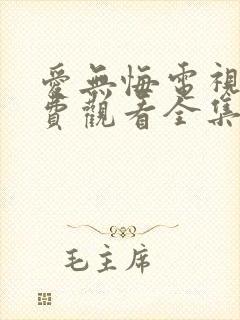 愛無悔電視
費觀看全集
毛主席